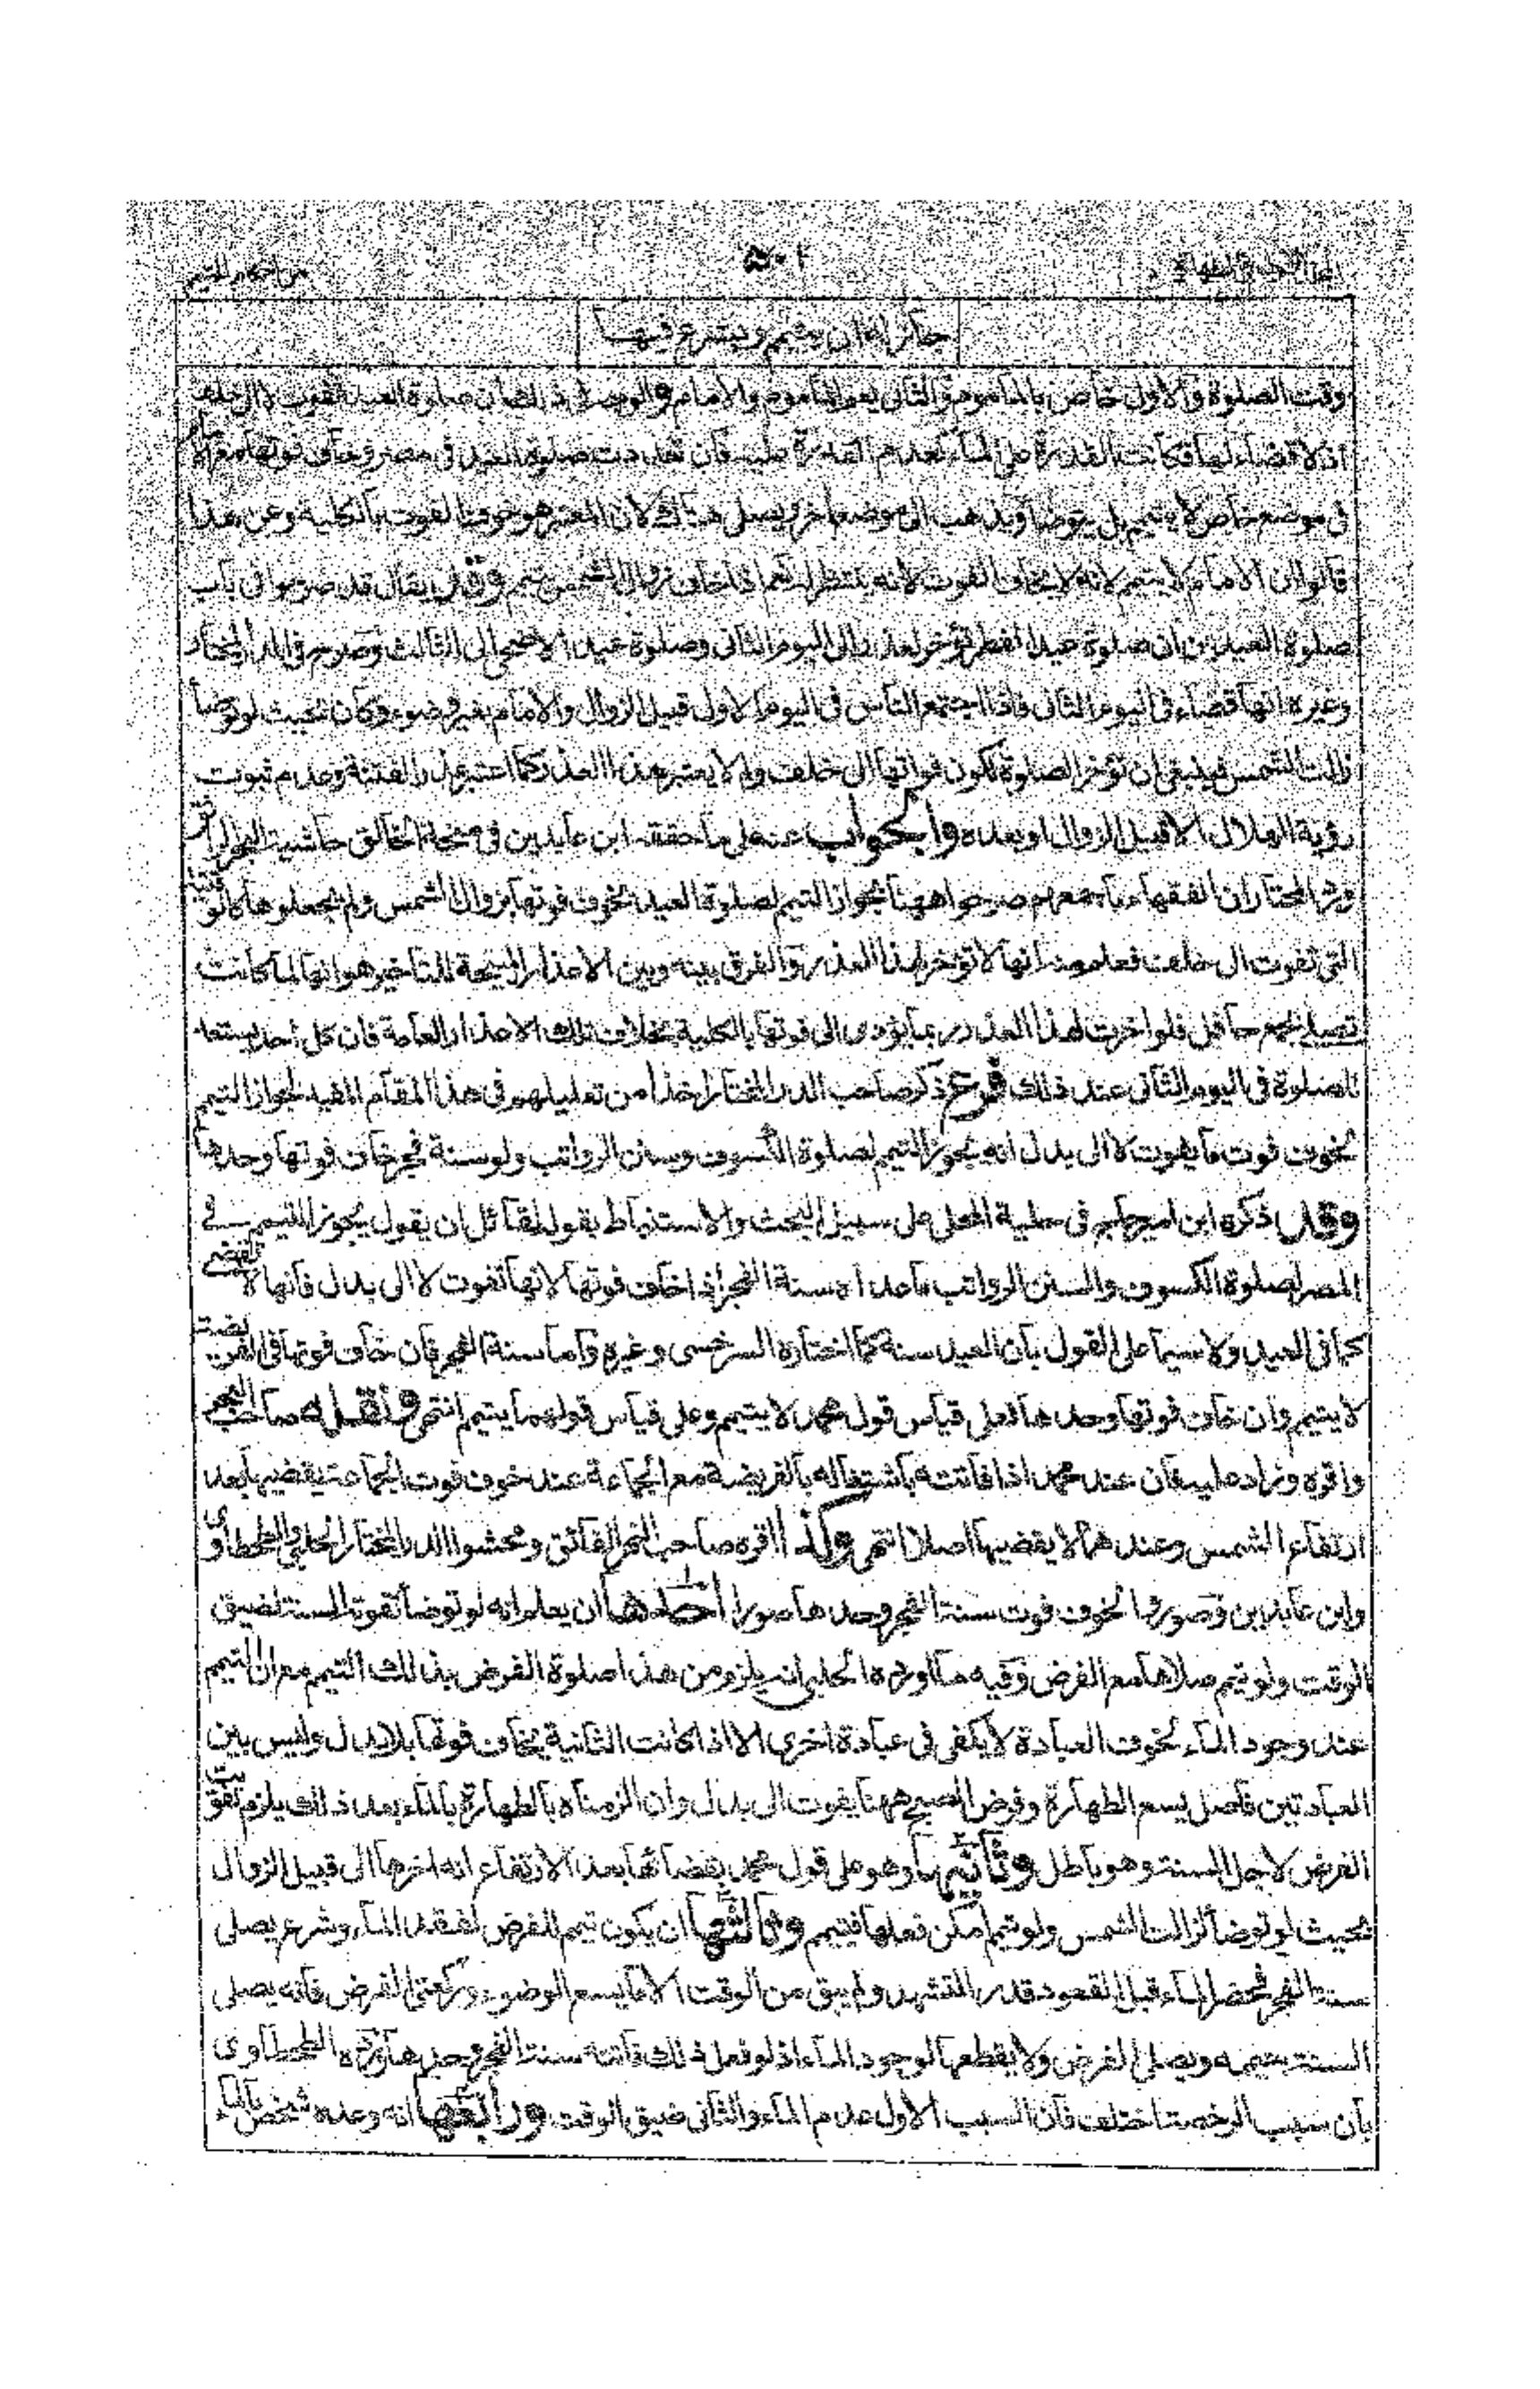 من احكام التيمم
٥٠١
جاز له ان يتيمم ويشرع فيها
وقت الصلوة والاول خاص بالماموم والثانى يعم الماموم والامام والوجه فى ذلك ان صلوة العيد تفوت لا الى خلف
اذ لا قضاء لها فكانت القدرة على الماء كعدم القدرة عليه فان تعددت صلوة العيد فى مصر وخاف فوتها مع الامام
فى موضع خاص لا يتيمم بل يتوضأ ويذهب الى موضع اخر ويصلى هناك لان المعتبر هو خوف الفوت بالكلية وعن هذا
قالوا ان الامام لا يتيمم لانه لا يخاف الفوت لانه ينتظر نعم اذا خاف زوال الشمس تيمم وقد يقال قد صرحوا فى باب
صلوة العيدين ان صلوة عيد الفطر تؤخر لعذر الى اليوم الثانى وصلوة عيد الاضحى الى الثالث وصرح فى الدر المختار
وغيره انها قضاء فى اليوم الثانى فاذا اجتمع الناس فى اليوم الاول قبيل الزوال والامام بغير وضوء وكان بحيث لو توضأ
زالت الشمس فينبغى ان تؤخر الصلوة لكون فواتها الى خلف ولم لا يعتبر هذا العذر كما اعتبر عذر الفتنة وعدم ثبوت
رؤية الهلال الا قبيل الزوال او بعده والجواب عنه على ما حققه ابن عابدين فى منحة الخالق حاشية البحر الرائق
ورد المحتار ان الفقهاء باجمعهم صرحوا ههنا بجواز التيمم لصلوة العيد بخوف فوتها بزوال الشمس ولم يجعلوها كالوقتية
التى تفوت الى خلف فعلم منه انها لا تؤخر لهذا العذر والفرق بينه وبين الاعذار المبيحة للتاخير هو انها لما كانت
تصلى بجمع حافل فلو اخرت لهذا العذر ربما يؤدى الى فوتها بالكلية بخلاف تلك الاعذار العامة فان كل احد يستعد
للصلوة فى اليوم الثانى عند ذلك فرع ذكر صاحب الدر المختار اخذا من تعليلهم فى هذا المقام المفيد لجواز التيمم
بخوف فوت ما يفوت لا الى بدل انه يجوز التيمم لصلوة الكسوف وسنن الرواتب ولو سنة فجر خاف فوتها وحدها
وقد ذكره ابن امير حاج فى حلية المحلى على سبيل البحث والاستنباط بقوله لقائل ان يقول يجوز التيمم فى
المصر لصلوة الكسوف والسنن الرواتب ما عدا سنة الفجر اذا خاف فوتها لانها تفوت لا الى بدل فانها لا تقضى
كما فى العيد ولا سيما على القول بان العيد سنة كما اختاره السرخسى وغيره واما سنة الفجر فان خاف فوتها مع الفريضة
لا يتيمم وان خاف فوتها وحدها فعلى قياس قول محمد لا يتيمم وعلى قياس قولهما يتيمم انتهى ونقله صاحب البحر
واقره وزاد عليه فان عند محمد اذا فاتته باشتغاله بالفريضة مع الجماعة عند خوف فوت الجماعة يقضيها بعد
ارتفاع الشمس وعندهما لا يقضيها اصلا انتهى وكذا اقره صاحب النهر الفائق ومحشوا الدر المختار الحلبى والطحطاوى
وابن عابدين وصوروا لخوف فوت سنة الفجر وحدها صورا احدها ان يعلم انه لو توضأ تفوته السنة لضيق
الوقت ولو تيمم صلاها مع الفرض وفيه ما اورده الحلبى انه يلزم من هذا صلوة الفرض بذلك التيمم مع ان التيمم
عند وجود الماء لخوف العبادة لا يكفى فى عبادة اخرى الا اذا كانت الثانية يخاف فوتها بلا بدل وليس بين
العبادتين فاصل يسع الطهارة وفرض الصبح ههنا يفوت الى بدل وان الزمناه بالطهارة بالماء بعد ذلك يلزم تفويت
الفرض لاجل السنة وهو باطل وثانيها وهو على قول محمد بقضائها بعد الارتفاع انه اخرها الى قبيل الزوال
بحيث لو توضأ لزالت الشمس ولو تيمم امكن فعلها فتيمم وثالثها ان يكون تيمم للفرض لفقد الماء وشرع يصلى
سنة الفجر فحضر الماء قبل القعود قدر التشهد ولم يبق من الوقت الا ما يسع الوضوء وركعتى الفرض فانه يصلى
السنة بتيممه ويصلى الفرض ولا يقطعها لوجود الماء اذ لو فعل ذلك فاتته سنة الفجر وحدها ورده الطحطاوى
بان سبب الرخصة اختلف فان السبب الاول عدم الماء والثانى ضيق الوقت ورابعها انه وعده شخص بالماء